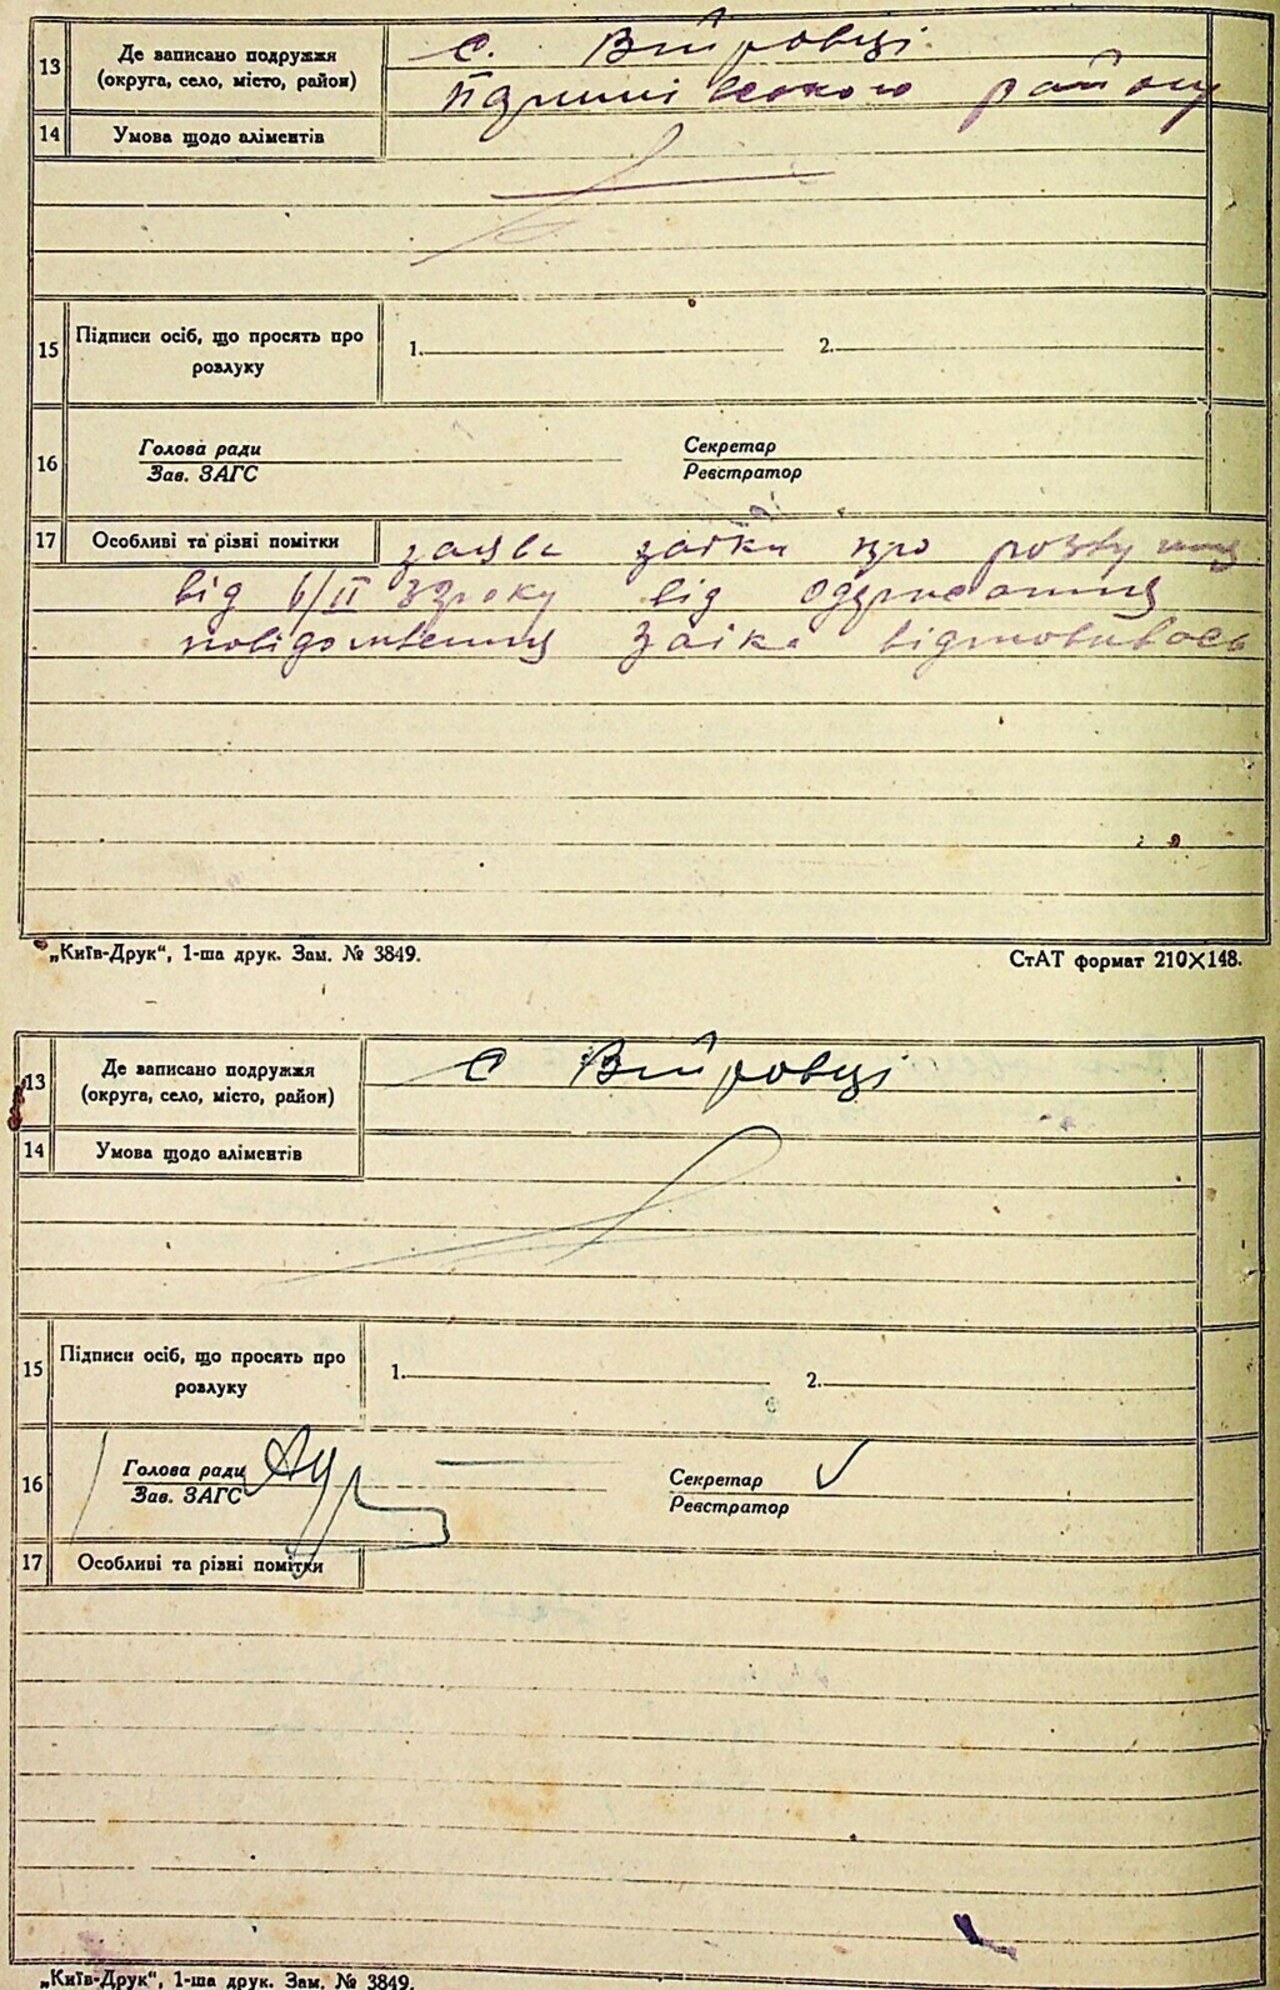 13 Де записано подружжя (округа, село, місто, район)
с. Війтовці
району
14 Умова щодо аліментів
15 Підписи осіб, що просять про розлуку 1. 2.
16 Голова ради Секретар
Зав. ЗАГС Реєстратор
17 Особливі та різні помітки заява заїки про
від 6/ІІ 33 року від одержання
повідомлення Заіка відмовилась
„Київ-Друк“, 1-ша друк. Зам. № 3849. СтАТ формат 210×148.
13 Де записано подружжя (округа, село, місто, район)
с Війтовці
14 Умова щодо аліментів
15 Підписи осіб, що просять про розлуку 1. 2.
16 Голова ради Секретар
Зав. ЗАГС Реєстратор
17 Особливі та різні помітки
„Київ-Друк“, 1-ша друк. Зам. № 3849.